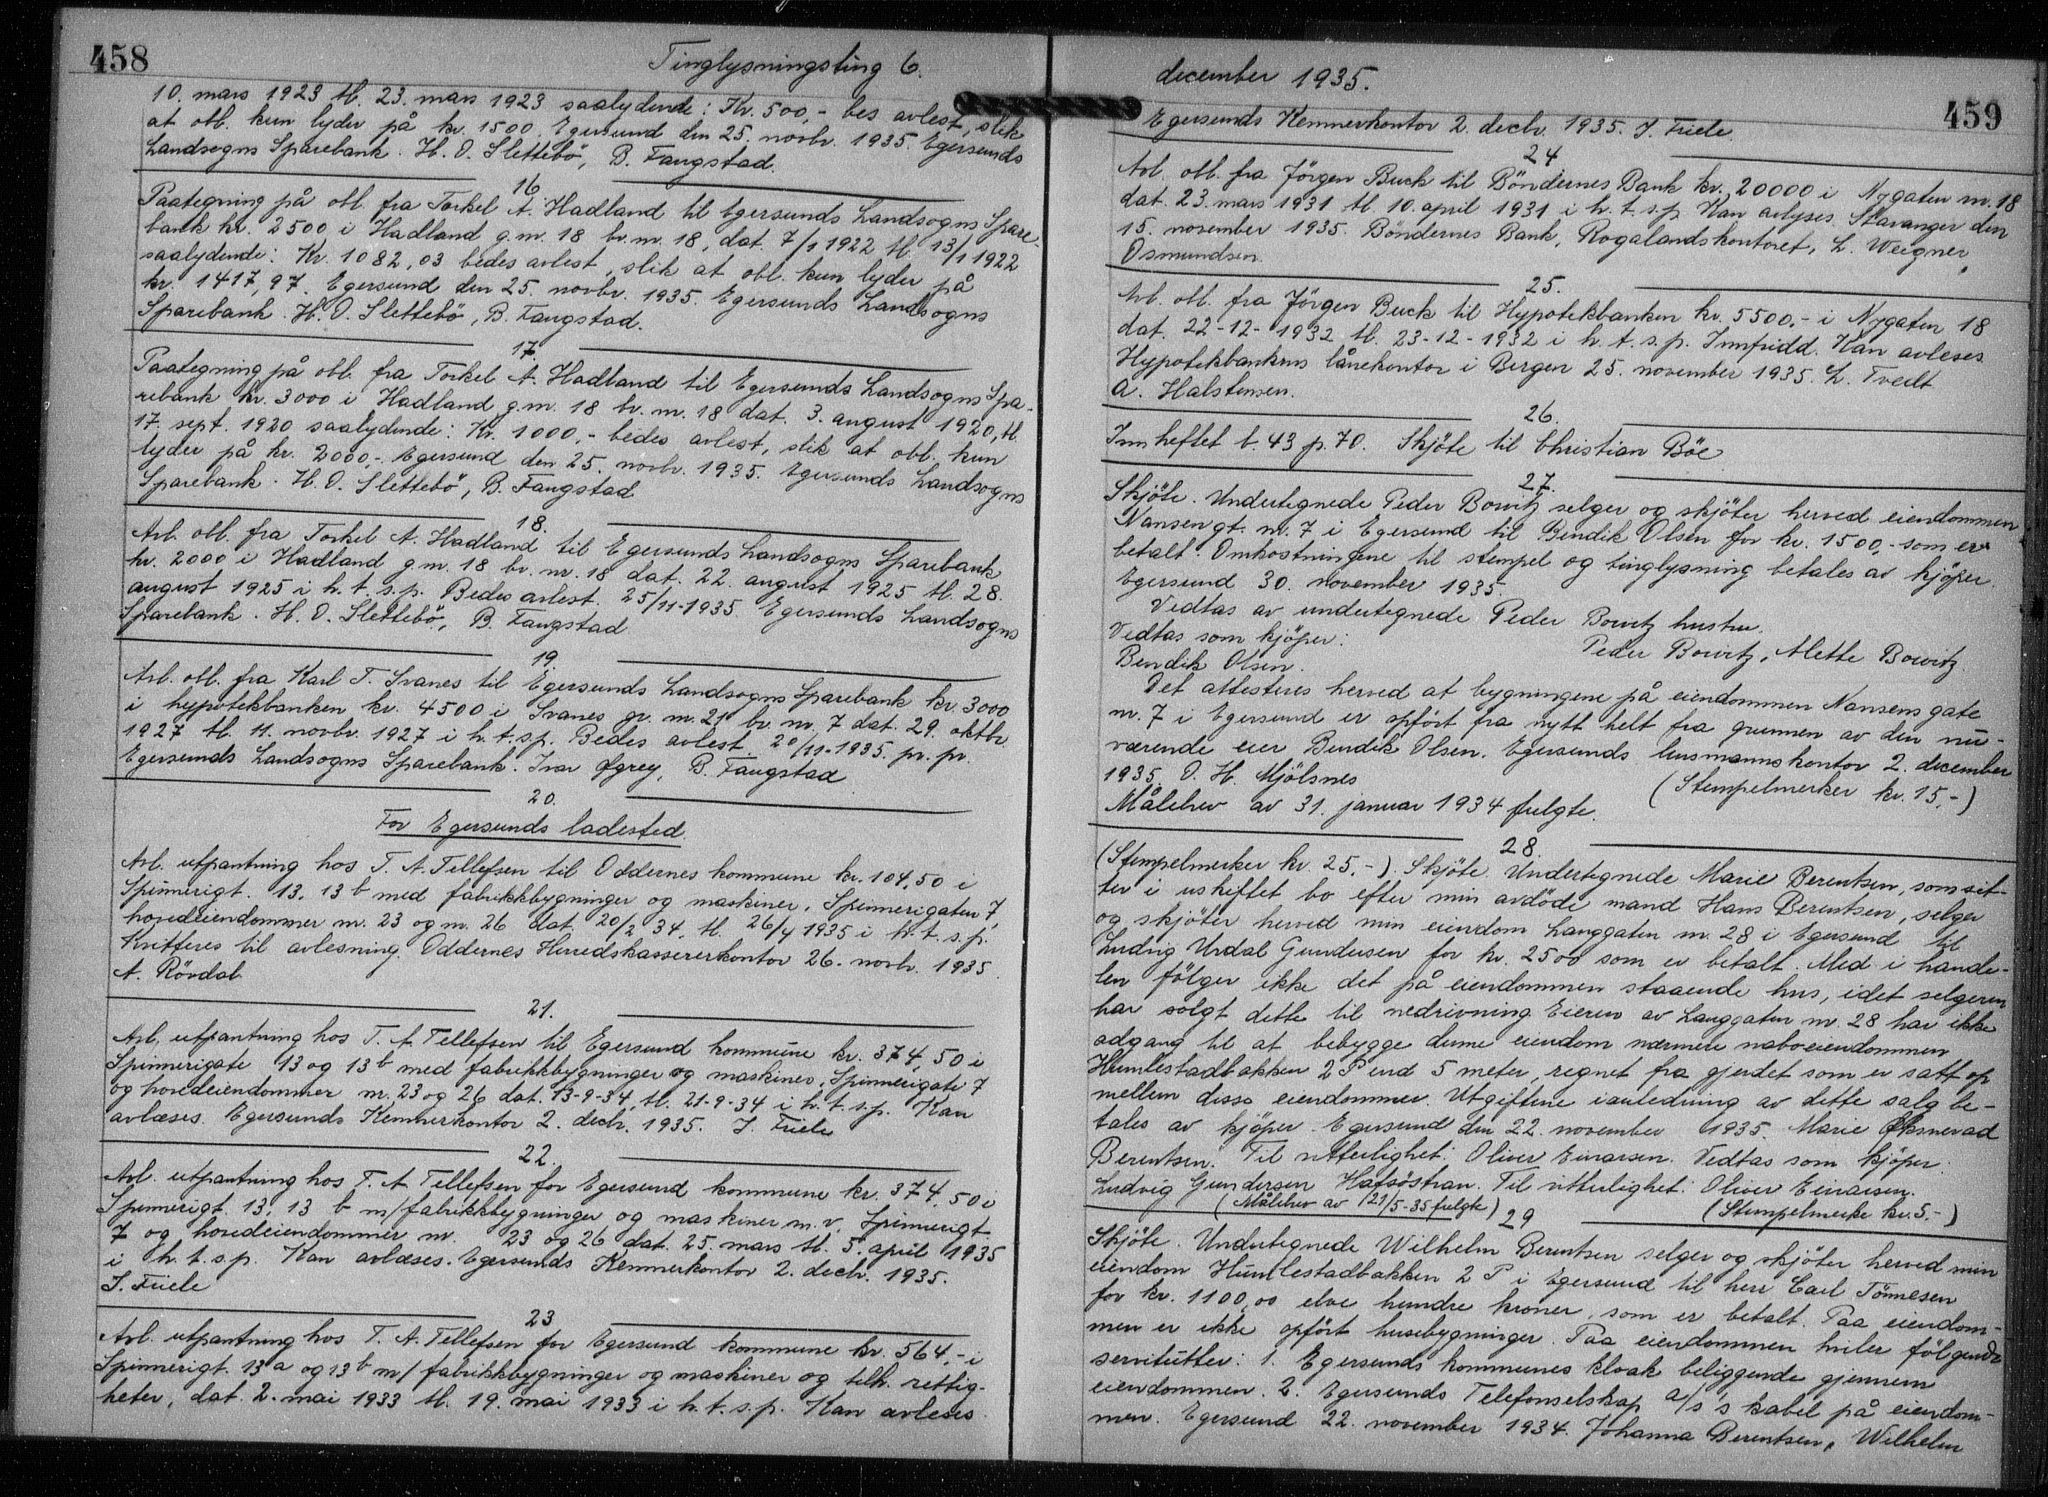 458
Tinglysningsting 6.
10. mars 1923 tl. 23. mars 1923 saalydende: Kr. 500,- bes avlest, slik
at obl. kun lyder på kr. 1500. Egersund den 25. novbr. 1935. Egersunds
Landsogns Sparebank. H. O. Slettebö, B. Faugstad.
16.
Paategning på obl. fra Torkel A. Hadland til Egersunds Landsogns Spare-
bank kr. 2500 i Hadland g.nr. 18 br.nr. 18, dat. 7/1 1922 tl. 13/1 1922
saalydende: Kr. 1082,03 bedes avlest, slik at obl. kun lyder på
kr. 1417,97. Egersund den 25. novbr. 1935. Egersunds Landsogns
Sparebank. H. O. Slettebö, B. Faugstad.
17.
Paategning på obl. fra Torkel A. Hadland til Egersunds Landsogns Spa-
rebank kr. 3000 i Hadland g.nr. 18 br. nr. 18 dat. 3. august 1920, tl.
17. sept. 1920 saalydende: Kr. 1000,- bedes avlest, slik at obl. kun
lyder på kr. 2000,-. Egersund den 25. novbr. 1935. Egersunds Landsogns
Sparebank. H. O. Slettebö, B. Faugstad
18.
Avl. obl. fra Torkel A. Hadland til Egersunds Landsogns Sparebank
kr. 2000 i Hadland g.nr. 18 br. nr. 18 dat. 22. august 1925 tl. 28.
august 1925 i h.t.s.p. Bedes avlest. 25/11-1935 Egersunds Landsogns
Sparebank. H. O. Slettebö, B. Faugstad
19.
Avl. obl. fra Karl T. Svanes til Egersunds Landsogns Sparebank kr. 3000
i hypotekbanken kr. 4500 i Svanes gr. nr. 21 br. nr. 7 dat. 29. oktbr.
1927 tl. 11. novbr. 1927 i h.t.s.p. Bedes avlest. 20/11-1935. pr. pr.
Egersunds Landsogns Sparebank. Ivar Øgrey, B. Faugstad
20.
For Egersunds ladested
Avl. utpantning hos T. A. Tellefsen til Oddernes kommune kr. 104,50 i
Spinnerigt. 13, 13 b med fabrikkbygninger og maskiner, Spinnerigaten 7,
hovedeiendommer nr. 23 og nr. 26 dat. 20/2 34, tl. 26/4 1935 i h.t.s.p.
Kvitteres til avlesning. Oddernes Herredskassererkontor 26. novb. 1935.
A. Rövdal
21.
Avl. utpantning hos T. A Tellefsen til Egersund kommune kr. 374,50 i
Spinnerigate 13 og 13 b med fabrikkbygninger og maskiner, Spinnerigate 7
og hovedeiendommer nr. 23 og 26 dat. 13-9-34, tl. 21-9-34 i h.t.s.p. Kan
avlæses. Egersunds Kemnerkontor 2. decbr. 1935. J. Friele
22.
Avl. utpantning hos T. A Tellefsen for Egersund kommune kr. 374,50 i
Spinnerigt. 13, 13 b m/fabrikkbygninger og maskiner m.v. Spinnerigt.
7 og hovedeiendommer nr. 23 og 26 dat. 25. mars tl. 5. april 1935
i h.t.s.p. Kan avlæses. Egersunds Kemnerkontor 2. decbr. 1935.
J. Friele
23
Avl. utpantning hos T. A. Tellefsen for Egersund kommune kr. 564,- i
Spinnerigt. 13 a og 13 b m/fabrikkbygninger og maskiner og tilh. rettig-
heter, dat. 2. mai 1933 tl. 19. mai 1933 i h.t.s.p. Kan avleses
december 1935.
459
Egersunds Kemnerkontor 2. decbr. 1935. J. Friele.
24.
Avl. obl. fra Jörgen Buck til Böndernes Bank kr. 20000 i Nygaten nr. 18
dat. 23. mars 1931 tl. 10. april 1931 i h.t.s.p. Kan avlyses. Stavanger den
15. november 1935. Böndernes Bank, Rogalandskontoret, L. Weigner,
Osmundsen.
25.
Avl. obl. fra Jörgen Buck til Hypotekbanken kr. 5500,- i Nygaten 18
dat. 22-12-1932, tl. 23-12-1932 i h.t.s.p. Innfridd. Kan avleses.
Hypotekbankens lånekontor i Bergen 25. november 1935. L. Tvedt
A. Halstensen.
26.
Innheftet b. 43 p. 70. Skjöte til Christian Böe
27.
Skjöte. Undertegnede Peder Bowitz selger og skjöter herved eiendommen
Nansengt. nr. 7 i Egersund til Bendik Olsen for kr. 1500,- som er
betalt. Omkostningene til stempel og tinglysning betales av kjöper.
Egersund 30. november 1935.
Vedtas av undertegnede Peder Bowitz hustru.
Vedtas som kjöper: Peder Bowitz, Mette Bowitz
Bendik Olsen.
Det attesteres herved at bygningene på eiendommen Nansensgate
nr. 7 i Egersund er opfört fra nytt helt fra grunnen av den nu-
værende eier Bendik Olsen. Egersunds lensmannskontor 2. december
1935. O. H. Mjölsnes (Stempelmerker kr. 15,-)
Målebrev av 31. januar 1934 fulgte.
28.
(Stempelmerker kr. 25,-) Skjöte. Undertegnede Marie Berentsen, som sit-
ter i uskiftet bo efter min avdöde mand Hans Berentsen, selger
og skjöter herved min eiendom Langgaten nr. 28 i Egersund til
Ludvig Urdal Gundersen for kr. 2500 som er betalt. Med i hande-
len fölger ikke det på eiendommen staaende hus, idet selgeren
har solgt dette til nedrivning. Eieren av Langgaten nr. 28 har ikke
adgang til at bebygge denne eiendom nærmere naboeiendommen
Humlestadbakken 2 P end 5 meter, regnet fra gjerdet som er satt op
mellem disse eiendommer. Utgiftene i anledning av dette salg be-
tales av kjöper. Egersund den 22. november 1935. Marie Øksnevad
Berentsen. Til vitterlighet: Oliver Einarsen. Vedtas som kjöper:
Ludvig Gundersen Hafsöstran. Til vitterlighet: Oliver Einarsen.
(Målebrev av 21/5-35 fulgte) 29 (Stempelmerke kr. 5.-)
Skjöte. Undertegnede Wilhelm Berentsen selger og skjöter herved min
eiendom Humlestadbakken 2 P i Egersund til herr Carl Tönnesen
for kr. 1100,00 elve hundre kroner, som er betalt. Paa eiendom-
men er ikke opfört husebygninger. Paa eiendommen hviler fölgende
servitutter: 1. Egersunds kommunes kloak beliggende gjennem
eiendommen. 2. Egersunds Telefonselskap a/s's kabel på eiendom-
men. Egersund 22. november 1934. Johanna Berentsen, Wilhelm